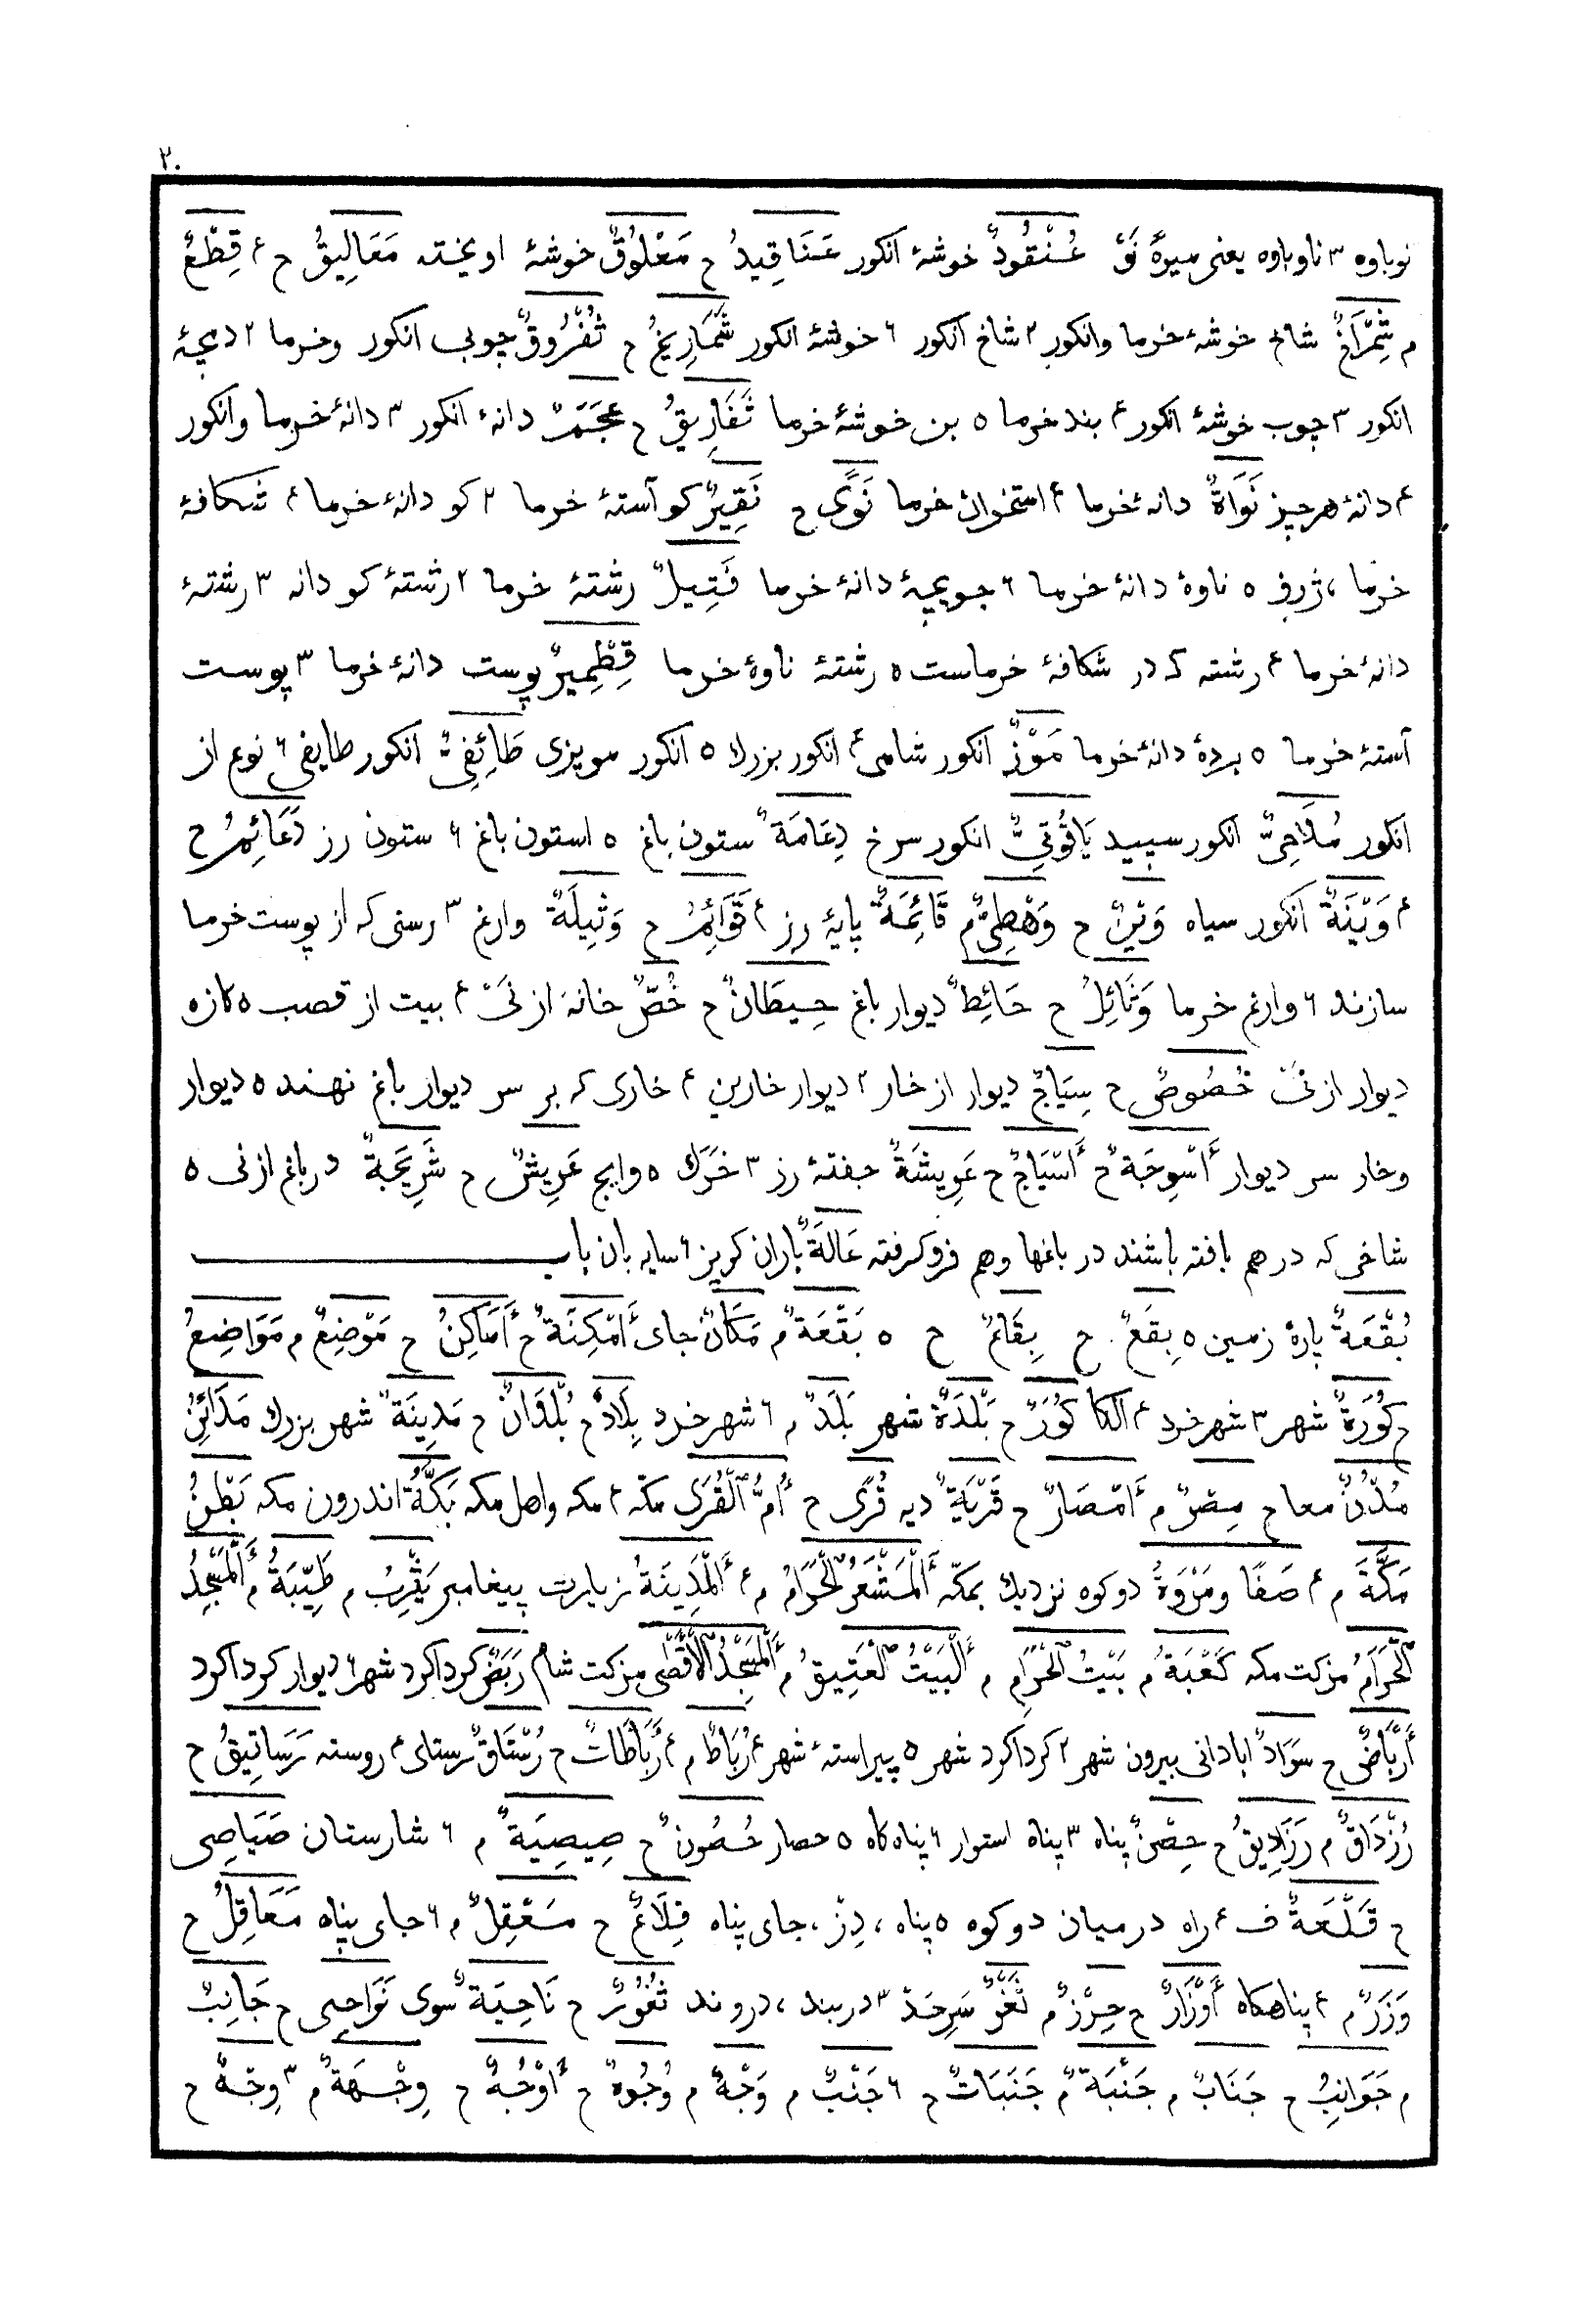 ۲۰
نوباوه ۳ ناوباوه یعنی میوهٔ نَوْ عُنْقُودٌ خوشهٔ انکور عَنَاقِیدُ ح مَعْلُوقٌ خوشهٔ اویخته مَعَالِیقُ ح ۴ قِطْعٌ
م شِمْرَاخٌ شاخ خوشهٔ خرما وانکور ۲ شاخ انکور ۶ خوشهٔ انکور شَمَارِیخُ ح ثُفْرُوقٌ چوبی انکور وخرما ۲ دیچهٔ
انکور ۳ چوب خوشهٔ انکور ۴ بند خرما ۵ بن خوشهٔ خرما ثَفَارِیقُ ح عَجَمٌ دانهٔ انکور ۳ دانهٔ خرما وانکور
۴ دانهٔ هرچیز نَوَاةٌ دانهٔ خرما ۴ استخوان خرما نَوًی ح نَقِیرٌ کو آستهٔ خرما ۲ کو دانهٔ خرما ۴ شکافهٔ
خرما ، ژرفی ۵ ناوهٔ دانهٔ خرما ۶ جویچهٔ دانهٔ خرما فَتِیلٌ رشتهٔ خرما ۲ رشتهٔ کو دانه ۳ رشتهٔ
دانهٔ خرما ۴ رشته که در شکافهٔ خرماست ۵ رشتهٔ ناوهٔ خرما قِطْمِیرٌ پوست دانهٔ خرما ۳ پوست
آستهٔ خرما ۵ بردهٔ دانهٔ خرما مَوْزٌ انکور شامی ۴ انکور بزرك ۵ انکور مویزی طَائِفِیٌّ انکور طایفی ۶ نوعی از
انکور مُلَاحِیٌّ انکور سپید یَاقُوتِیٌّ انکور سرخ دِعَامَةٌ ستون باغ ۵ استون باغ ۶ ستون رز دَعَائِمُ ح
۴ وَیْنَةٌ انکور سیاه وَیْنٌ ح وَهْطِیٌّ م قَائِمَةٌ پایهٔ رز ۴ قَوَائِمُ ح وَثِیلَةٌ وارغ ۳ رسنی که از پوست خرما
سازند ۶ وارغ خرما وَثَائِلُ ح حَائِطٌ دیوار باغ حِیطَانٌ ح خُصٌّ خانه از نَیْ ۴ بیت از قصب ۵ کازه
دیوار از نَیْ خُصُوصٌ ح سِیَاجٌ دیوار از خار ۲ دیوار خارین ۴ خاری که بر سر دیوار باغ نهند ۵ دیوار
وخار سر دیوار أَسْوِجَةٌ ح أَسْیَاجٌ ح عَرِیشَةٌ جفتهٔ رز ۳ خَرَك ۵ وایج عَرِیشٌ ح شَرِیجَةٌ در باغ از نی ۵
شاخی که در هم بافته باشند در باغها وهم فروکرفته عَالَةٌ باران کریز ۶ سایه بان باب
بُقْعَةٌ پارهٔ زمین ۵ بِقَعٌ ح بِقَاعٌ ح ۵ بَقْعَةٌ م مَکَانٌ جای أَمْکِنَةٌ ح أَمَاکِنُ ح مَوْضِعٌ م مَوَاضِعُ
ح کُورَةٌ شهر ۳ شهر خرد ۴ الکا کُوَرٌ ح بَلْدَةٌ شهر بَلَدٌ م ۶ شهر خرد بِلَادٌ ح بُلْدَانٌ ح مَدِینَةٌ شهر بزرك مَدَائِنُ
مُدُنٌ معا ح مِصْرٌ م أَمْصَارٌ ح قَرْیَةٌ دیه قُرًی ح أُمُّ ٱلْقُرَی مکّه ۴ مکه واصل مکه بَکَّةُ اندرون مکه بَطْنُ
مَکَّةَ م ۴ صَفَا ومَرْوَةُ دو کوه نزدیك بمکّه أَلْمَشْعَرُ ٱلْحَرَامُ م ۴ أَلْمَدِینَةُ زیارت پیغامبر یَثْرِبُ م طَیِّبَةُ م أَلْمَسْجِدُ
ٱلْحَرَامُ مزکت مکه کَعْبَةُ م بَیْتُ ٱلْحَرَامِ م أَلْبَیْتُ ٱلْعَتِیقُ م أَلْمَسْجِدُ ٱلْأَقْصَی مزکت شام رَبَضٌ کرداکرد شهر ۶ دیوار کرداکرد
أَرْبَاضٌ ح سَوَادٌ ابادانی بیرون شهر ۲ کرداکرد شهر ۵ پیراستهٔ شهر ۴ رُبَاطٌ م ۴ رُبَاطَاتٌ ح رُسْتَاقٌ رستای ۴ روسته رَسَاتِیقُ ح
رُزْدَاقٌ م رَزَادِیقُ ح حِصْنٌ پناه ۳ پناه استوار ۶ پناه کاه ۵ حصار حُصُونٌ ح صِیصِیَةٌ م ۶ شارستان صَیَاصِی
ح قَلْعَةٌ ف ۴ راه در میان دو کوه ۵ پناه ، دِزْ ، جای پناه قِلَاعٌ ح مَعْقِلٌ م ۶ جای پناه مَعَاقِلُ ح
وَزَرٌ م ۴ پناهکاه أَوْزَارٌ ح حِرْزٌ م ثَغْرٌ سَرِحَدّ ۳ دربند ، دروند ثُغُورٌ ح نَاحِیَةٌ سوی نَوَاحِی ح جَانِبٌ
م جَوَانِبُ ح جَنَابٌ م جَنْبَةٌ م جَنَبَاتٌ ح ۶ جَنْبٌ م وَجْهٌ م وُجُوهٌ ح أَوْجُهٌ ح وِجْهَةٌ م ۳ وِجَهٌ ح